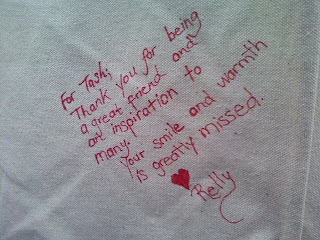 For Tash;
Thank you for being
a great friend and
an inspiration to
many.
Your smile and warmth
is greatly missed.
Relly